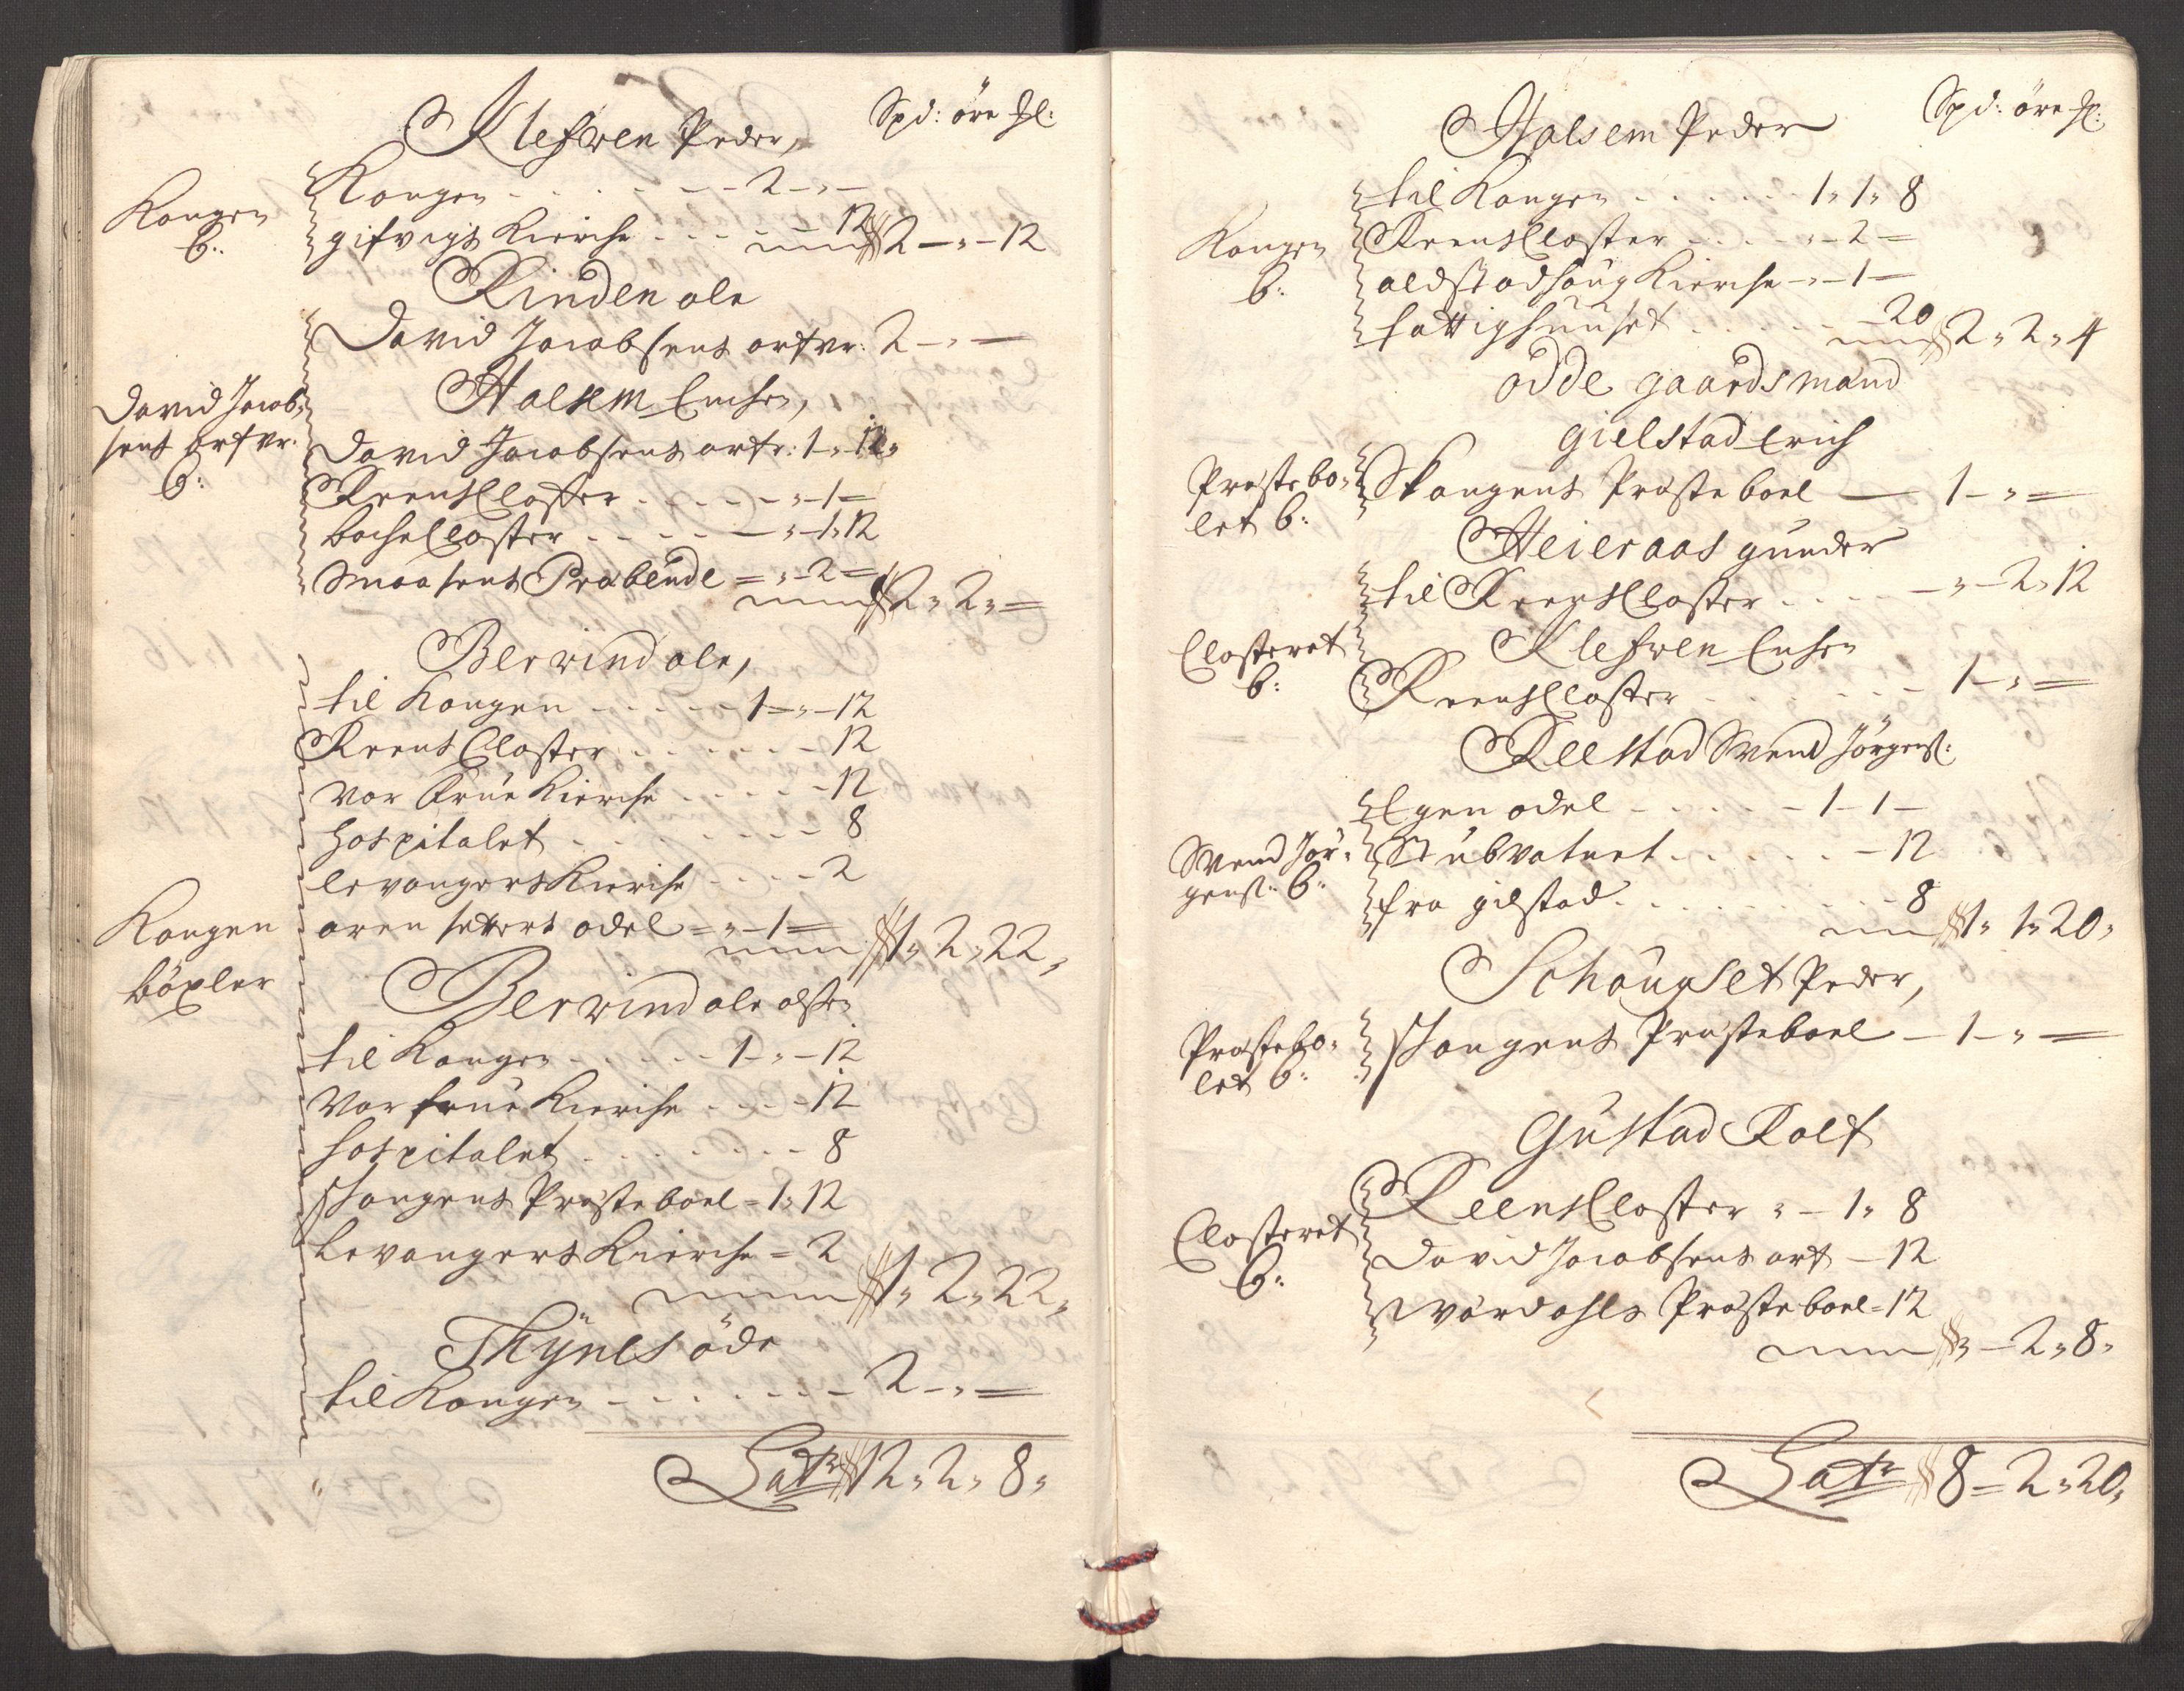 Klefwen Peder, Spd: öre Ml:
Kongen b:
Kongen - - - - - - - 2 - " -
gifvigs Kierche - - - - - 12
2 - " - 12
Rinden ole
David Jacobsens arfvr: 2 - " -
Halsem Enchen,
David Jacobsens arfvr. b:
David Jacobsens arfr: 1 " - 12 "
Reens Closter - - - - - " - 1 -
bache Closter - - - - - " - 1 " 12
Smaa sens Præbende = " - 2 =
2 " 2 " =
Berwind ole,
til Kongen - - - - - 1 - " - 12
Reens Closter - - - - - - 12
Vor Frue Kierche - - - - - 12
hospitalet - - - - - - - - 8
levangers Kierche - - - - 2
Kongen böxler
aren setters odel = " - 1 =
1 " 2 " 22 "
Berwind ole olsen
til Kongen - - - - - 1 - " - 12
Vor frue Kierche - - - - 12
hospitalet - - - - - - - 8
Stongens Præsteboel = 1 " 12
Levangers Kierche = 2
1 " 2 " 22 "
Thÿnes öde
til Kongen - - - - - - - 2 - " =
Latr 12 " 2 " 8 "
Halsem Peder Spd: öre Ml:
Kongen b:
til Kongen - - - - - - 1 " 1 " 8
Reens Closter - - - - " - 2 =
aldstadhoug Kierche - " - 1 -
fattighuuset - - - - - - 20
2 " 2 " 4
odde gaardsmand
gielstad Erich
Præstebolet b:
Stongens Præsteboel — 1 - " =
Heieraas gunder
til Reens Closter - - - - - " - 2 " 12
Closteret b:
Klefwen Enchen
Reens Closter - - - - - - - 1 - " =
Reestad Svend Jörgens:
Egen odel - - - - - - 1 - 1 -
Svend Jörgens: b:
Stubvatnet - - - - - - - 12
fra gilstad - - - - - - - - 8
1 " 1 " 20 "
Schougset Peder,
Præstebolet b:
Stongens Præsteboel - 1 - " =
Gustad Rolf
Closteret b:
Reens Closter " - 1 " 8
David Jacobsens arf - 12
Værdahls Præsteboel = 12
" - 2 " 8 "
Latr 8 = 2 " 20 "